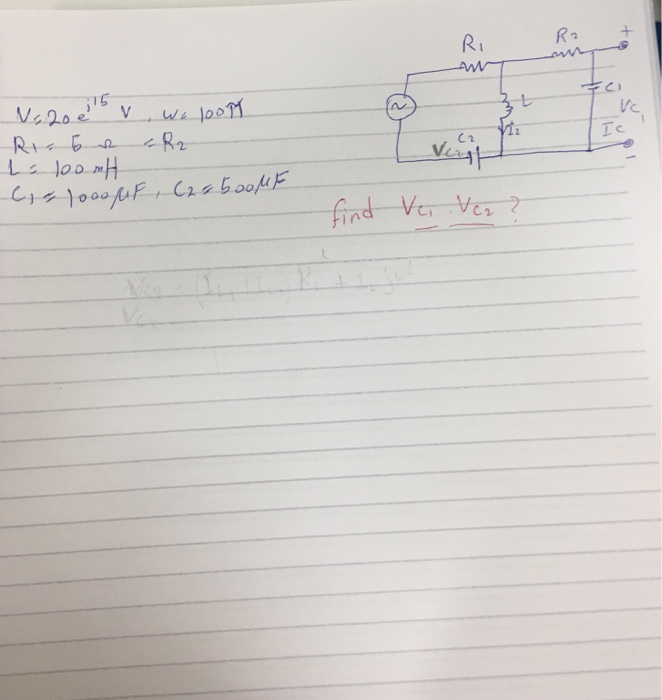 R1
R2
+
V = 20 e^j15 V, W = 100π
R1 = 5 Ω = R2
L = 100 mH
C1 = 1000 μF, C2 = 500 μF
~
L
C1
Vc1
I2
Ic
C2
Vc2
-
find Vc1, Vc2 ?